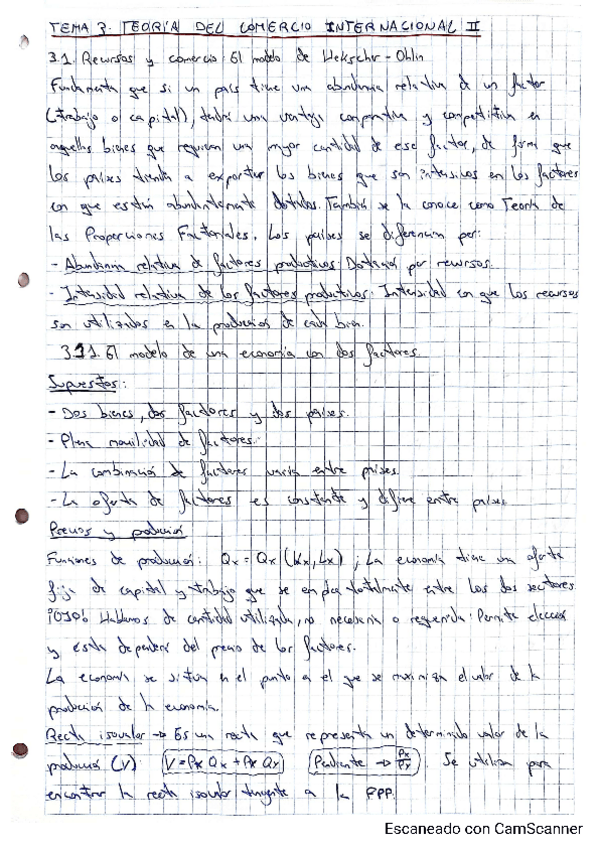 TEMA 3. TEORÍA DEL COMERCIO INTERNACIONAL II
3.1. Recursos y comercio: El modelo de Heckscher-Ohlin
Fundamenta que si un país tiene una abundancia relativa de un factor
(trabajo o capital), tendrá una ventaja comparativa y competitiva en
aquellos bienes que requieran una mayor cantidad de ese factor, de forma que
los países tienden a exportar los bienes que son intensivos en los factores
con que están abundantemente dotados. También se la conoce como Teoría de
las Proporciones Factoriales. Los países se diferencian por:
- Abundancia relativa de factores productivos: Dotación por recursos.
- Intensidad relativa de los factores productivos: Intensidad con que los recursos
son utilizados en la producción de cada bien.
3.1.1. El modelo de una economía con dos factores.
Supuestos:
- Dos bienes, dos factores y dos países.
- Plena movilidad de factores.
- La combinación de factores varía entre países.
- La oferta de factores es constante y difiere entre países.
Precios y producción
Funciones de producción: Qx = Qx (Kx, Lx) ; La economía tiene una oferta
fija de capital y trabajo que se emplea totalmente entre los dos sectores.
¡OJO! Hablamos de cantidad utilizada, no necesaria o requerida. Permite elección
y esta dependerá del precio de los factores.
La economía se sitúa en el punto en el que se maximiza el valor de la
producción de la economía.
Recta isovalor → Es una recta que representa un determinado valor de la
producción (V): V = Px Qx + Py Qy Pendiente → Px/Py. Se utiliza para
encontrar la recta isovalor tangente a la FPP.
Escaneado con CamScanner